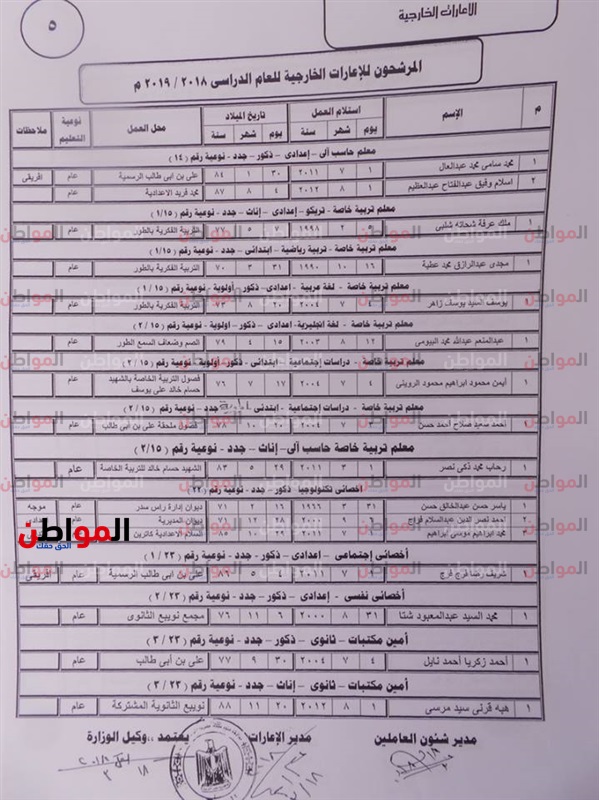 الاعارات الخارجية
٥
المرشحون للإعارات الخارجية للعام الدراسى ٢٠١٨ / ٢٠١٩ م
م الإسم استلام العمل تاريخ الميلاد محل العمل نوعية التعليم ملاحظات
يوم شهر سنة يوم شهر سنة
معلم حاسب ألى – إعدادى – ذكور – جدد - نوعية رقم (١٤)
١ محمد سامى محمد عبدالعال ١ ٧ ٢٠١١ ٣٠ ١ ٨٤ على بن ابى طالب الرسمية عام افريقى
٢ اسلام وفيق عبدالفتاح عبدالعظيم ١ ٨ ٢٠١٢ ٤ ٨ ٨٧ محمد فريد الاعدادية عام
معلم تربية خاصة – تريكو – إعدادى – إناث – جدد - نوعية رقم (١/١٥)
١ ملك عرفة شحاته شلبى ٥ ٢ ١٩٩٨ ٥ ٧٧ التربية الفكرية بالطور عام
معلم تربية خاصة – تربية رياضية – ابتدائى – جدد - نوعية رقم (١/١٥)
١ مجدى عبدالرازق محمد عطية ١٦ ١٠ ١٩٩٠ ٣١ ٣ ٧٠ التربية الفكرية بالطور عام
معلم تربية خاصة - لغة عربية – إعدادى - ذكور - أولوية - نوعية رقم (١/١٥)
١ يوسف السيد يوسف زاهر ٤ ٧ ٢٠٠٤ ٢٠ ٨ ٧٣ التربية الفكرية بالطور عام
معلم تربية خاصة - لغة انجليزية - اعدادى – ذكور – اولوية - نوعية رقم (٢/١٥)
١ عبدالمنعم عبدالله محمد البيومى ١٢ ٨ ٢٠٠٣ ١٥ ٤ ٧٩ الصم وضعاف السمع الطور عام
معلم تربية خاصة - دراسات إجتماعية – ابتدائى - ذكور - أولوية - نوعية رقم (٢/١٥)
١ أيمن محمود ابراهيم محمود الروينى ٤ ٧ ٢٠٠٤ ١٧ ٧ ٧٦ فصول التربية الخاصة بالشهيد حسام خالد على يوسف عام
معلم تربية خاصة - دراسات إجتماعية - ابتدئى جدد - نوعية رقم (٢/١٥)
١ أحمد سعيد صلاح أحمد حسن ٧ ٢٠٠٤ ٢٠ ١٠ ٧٨ فصول ملحقة على بن أبى طالب عام
معلم تربية خاصة حاسب ألى – إناث – جدد - نوعية رقم (٢/١٥)
١ رحاب محمد ذكى نصر ١ ٣ ٢٠١١ ٢٩ ٥ ٨٣ الشهيد حسام خالد للتربية الخاصة عام
اخصائى تكنولوجيا ذكور - جدد - نوعية رقم (٢٢)
١ ياسر حسن عبدالخالق حسن ٣١ ٣ ١٩٩٦ ١٦ ٢ ٧١ ديوان إدارة راس سدر عام موجه
٢ أحمد نصر الدين عبدالسلام فراج ٦ ٩ ديوان المديرية
٣ محمد ابراهيم موسى ابراهيم السلام الاعدادية
أخصائى إجتماعي – إعدادى – ذكور – جدد - نوعية رقم (١/٢٣)
١ شريف رضا فرج فرج ١ ٧ ٢٠١١ ٤ ٥ ٨٦ على بن أبى طالب الرسمية عام افريقى
أخصائى نفسى - إعدادى – ذكور – جدد - نوعية رقم (٢/٢٣)
١ محمد السيد عبدالمعبود شتا ٣١ ٨ ٢٠٠٠ ٦ ١١ ٧٦ مجمع نويبع الثانوى عام
أمين مكتبات – ثانوى – ذكور – جدد - نوعية رقم (٣/٢٣)
١ أحمد زكريا أحمد نايل ٤ ٧ ٢٠٠٤ ٣٠ ٩ ٧٧ على بن أبى طالب عام
أمين مكتبات – ثانوى – إناث – جدد - نوعية رقم (٣/٢٣)
١ هبه قرنى سيد مرسى ١ ٨ ٢٠١٢ ٢٠ ١١ ٨٨ نويبع الثانوية المشتركة عام
مدير شئون العاملين مدير الإعارات يعتمد ،، وكيل الوزارة
المواطن
الحق حقك